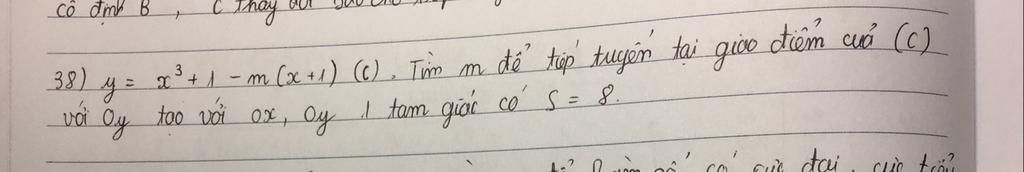 cố định B, C thay đổi
38) y = x³ + 1 - m(x+1) (C). Tìm m để tiếp tuyến tại giao điểm cuả (C)
với Oy tạo với ox, Oy 1 tam giác có S = 8.
có cực đại, cực tiểu